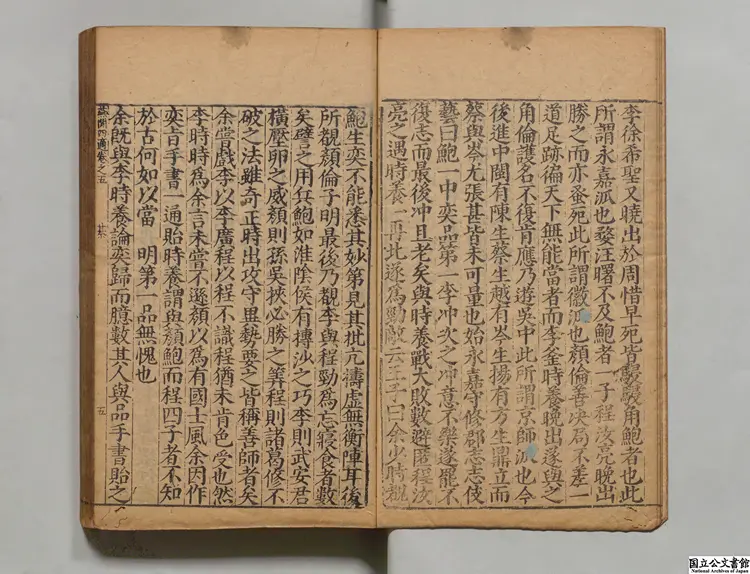 李徐希聖又曉出於周惜早死皆駸駸角鮑者也此
所謂永嘉派也婺汪曙不及鮑者一子程汝亮晚出
勝之而亦蚤死此所謂徽派也顏倫善決局不差一
道足跡徧天下無能當者而李釜時養晚出遂與之
角倫護名不復肯應乃遊吳中此所謂京師派也今
後進中閩有陳生蔡生越有岑生揚有方生鼎立而
蔡與岑尤張甚皆未可量也始永嘉守修郡志志伎
藝曰鮑一中奕品第一李冲次之冲意不樂遂罷不
復志而最後冲且老矣與時養戰大敗數避匿程汝
亮之遇時養一再北遂爲勁敵云王子曰余少時覩
鮑生奕不能悉其妙第見其批亢擣虛無衡陣耳後
所覩顏倫子明最後乃覩李與程勁爲忘寢食者數
矣譬之用兵鮑如淮陰侯有摶沙之巧李則武安君
橫壓卵之威顏則孫吳挾必勝之筭程則諸葛修不
破之法雖奇正時出攻守異埶要之皆稱善師者矣
余嘗戲李以李廣程以程不識程猶未肯色受也然
李時時爲余言未嘗不遜顏以爲有國士風余因作
奕旨手書一通貽時養謂與顏鮑而程四子者不知
於古何如以當 明第一品無愧也
余既與李時養論奕歸而臆數其人與品手書貽之
卷之五
五
国立公文書館
National Archives of Japan